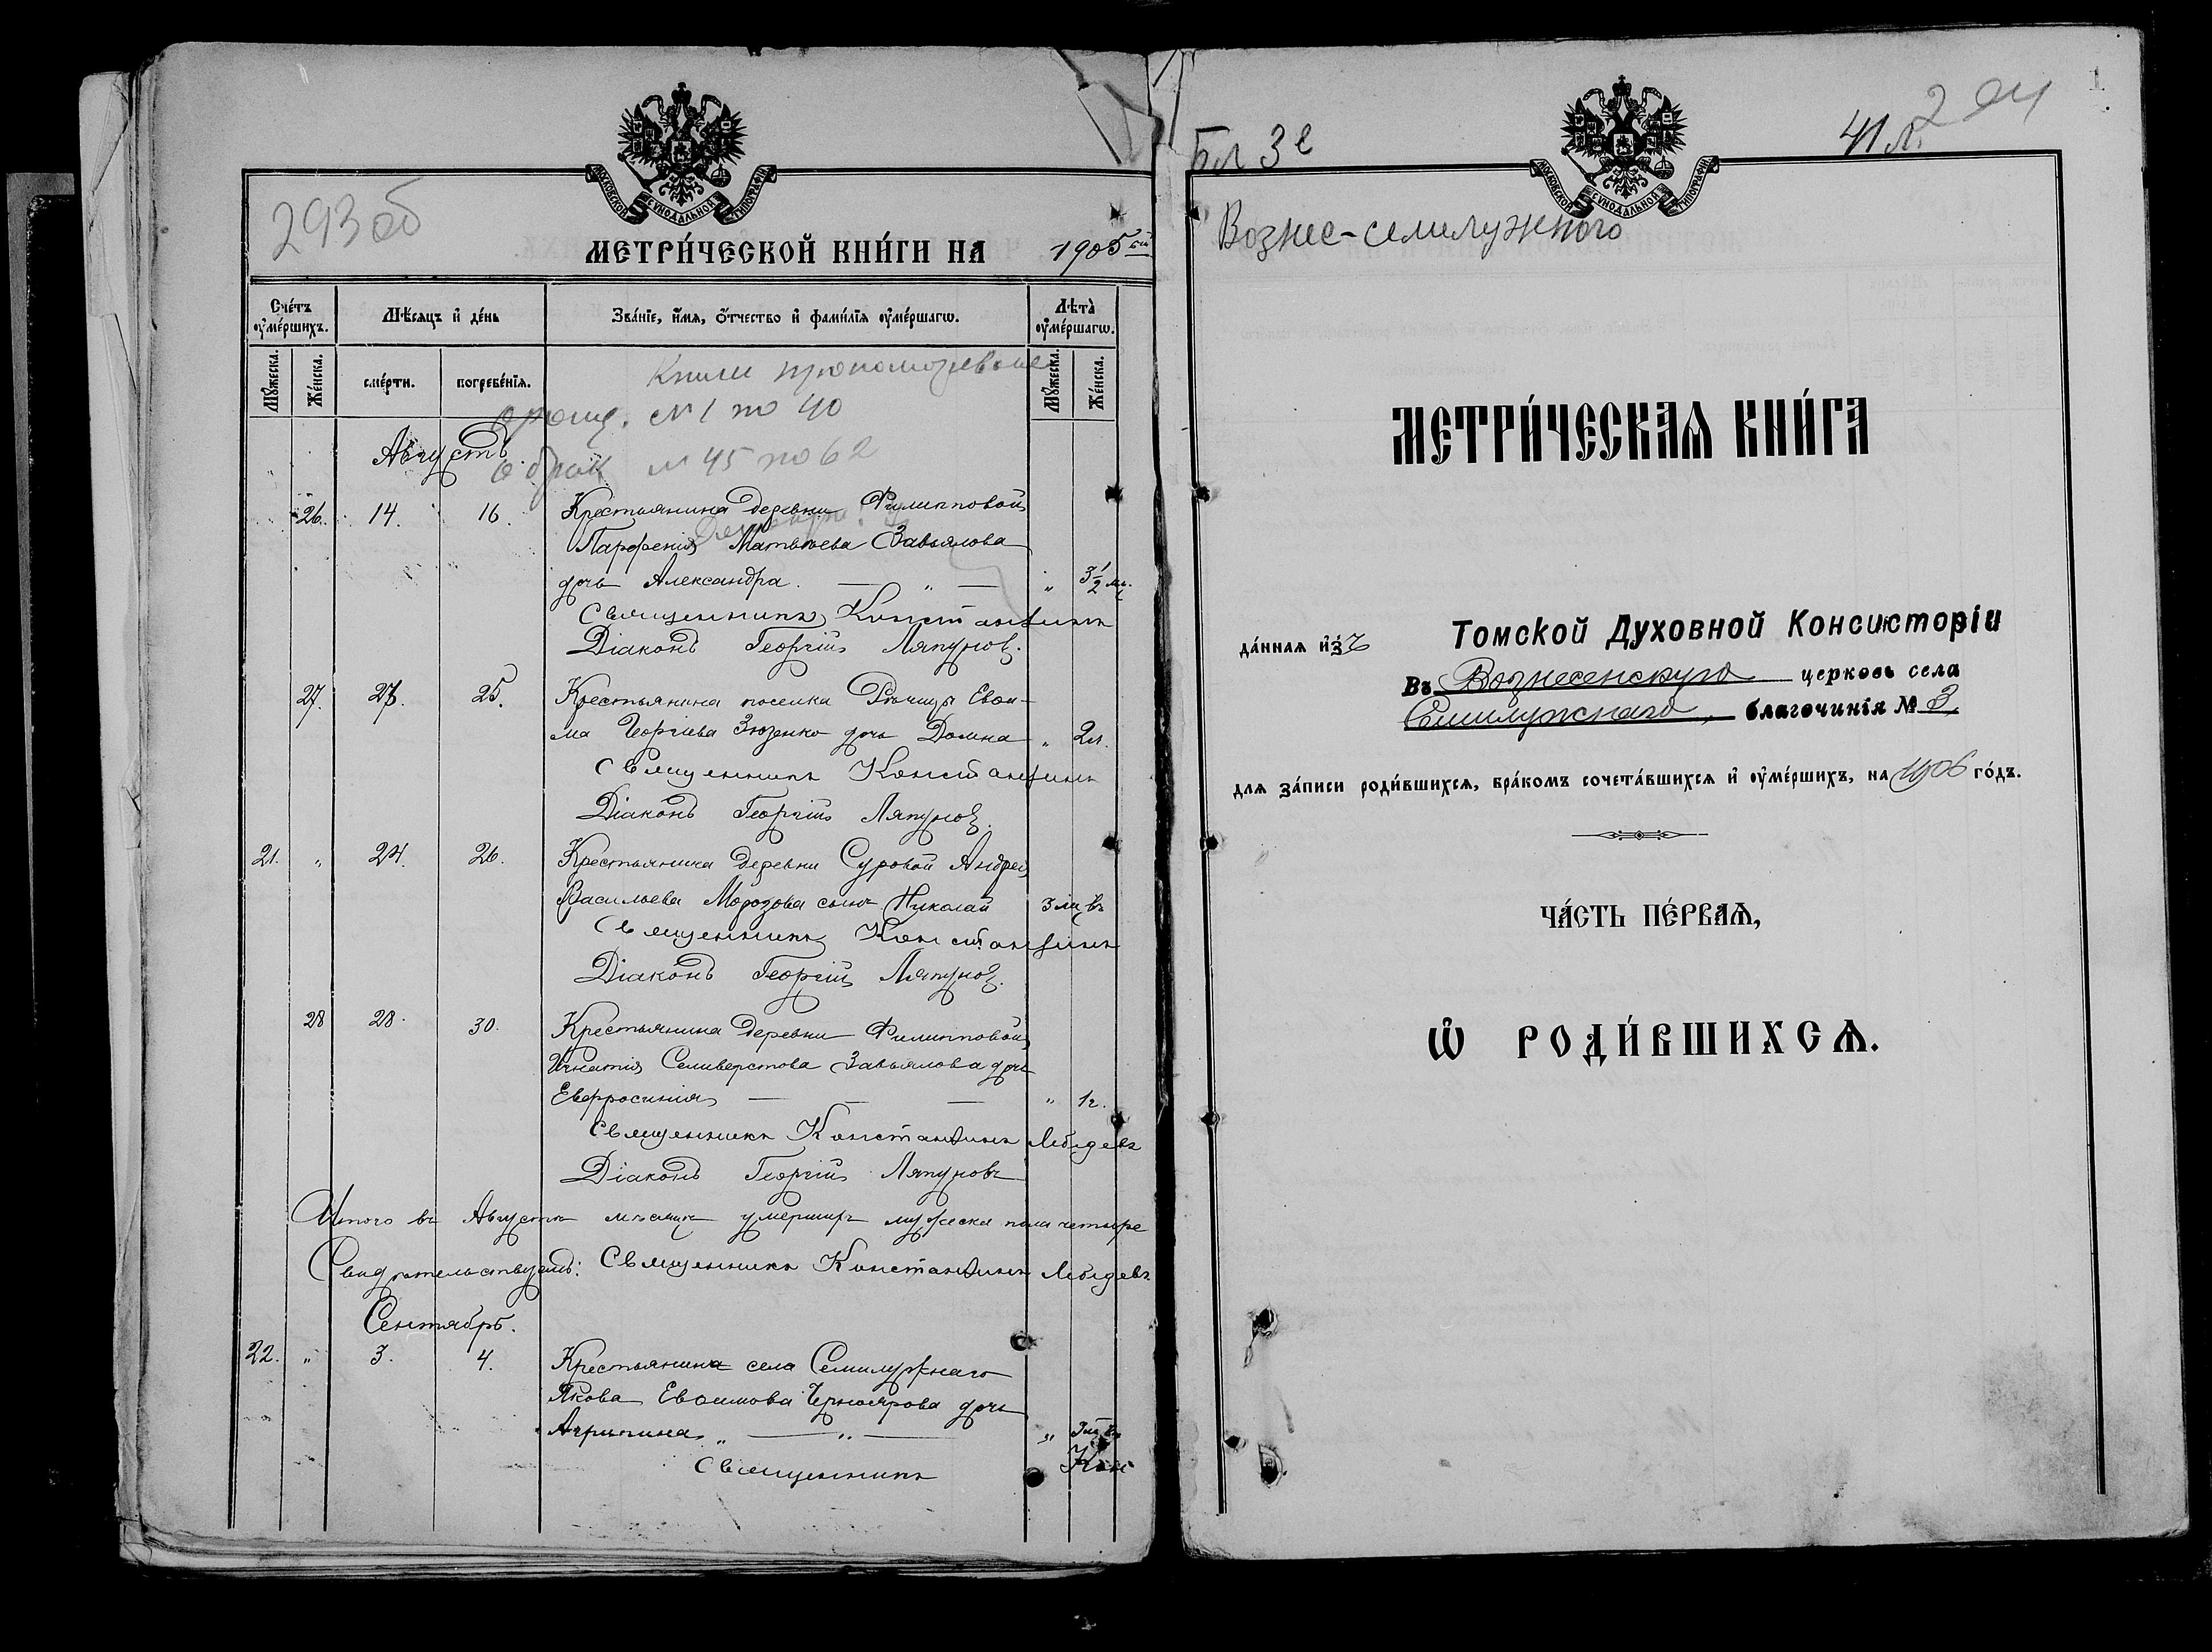 МОСКОВСКОЙ СѴНОДАЛЬНОЙ ТИПОГРАФІИ
293 об
МЕТРИ́ЧЕСКОЙ КНИ́ГИ НА 1905 ый
Сче́тъ оу҆ме́ршихъ.
Мѣ́сяцъ и҆ де́нь
Зва́ніе, и҆́мѧ, о҆́тчество и҆ фами́лїѧ оу҆ме́ршагѡ.
Лѣ́та оу҆ме́ршагѡ.
Мꙋ́жеска.
Же́нска.
сме́рти.
погребе́нїѧ.
Мꙋ́жеска.
Же́нска.
Книги
о рожд. № 1 по 40
Августъ.
о брак № 45 по 62
26. 14. 16. Крестьянина деревни Филипповой
Парфенія Матвѣева Завьялова
дочь Александра. — „ — „ 3 1/2 м.
Священникъ Константинъ
Діаконъ Георгій Ляпуновъ.
27. 23. 25. Крестьянина поселка Рѣчицы Евѳи-
ма Георгіева Зюзенко дочь Домна „ 2 л.
Священникъ Константинъ
Діаконъ Георгій Ляпуновъ.
21. „ 24. 26. Крестьянина деревни Суровой Андрея
Васильева Морозова сынъ Николай 3 мц въ
Священникъ Константинъ
Діаконъ Георгій Ляпуновъ.
28 28. 30. Крестьянина деревни Филипповой
Игнатія Селиверстова Завьялова дочь
Евфросинія — — — „ 1 г.
Священникъ Константинъ Лебедевъ
Діаконъ Георгій Ляпуновъ
Итого въ Августѣ мѣсяцѣ умершихъ мужеска пола четыре
Свидѣтельствуемъ: Священникъ Константинъ Лебедевъ
Сентябрь.
22. „ 3. 4. Крестьянина села Семилужнаго
Якова Евѳимова Черноярова дочь
Агрипина „ — „ — „
Священникъ Кон
Бл 3 е
41 л.
294
1
МОСКОВСКОЙ СѴНОДАЛЬНОЙ ТИПОГРАФІИ
Вознес-семилужного
МЕТРИ́ЧЕСКАѦ КНИ́ГА
да́ннаѧ и҆зъ Томской Духовной Консисторіи
Въ Вознесенскую церковь села
Семилужнаго, благочинія № 3,
длѧ за́писи роди́вшихсѧ, бра́комъ сочета́вшихсѧ и҆ оу҆ме́ршихъ, на 1906 го́дъ.
ЧА́СТЬ ПЕ́РВАѦ,
Ѡ҆ РОДИ́ВШИХСѦ.